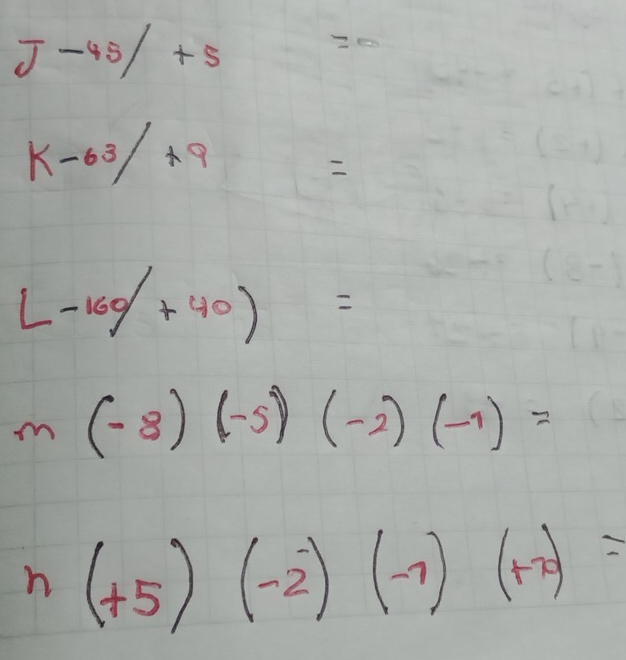 J -45/ +5 =
K -63/ +9 =
L -160/ +40) =
m (-8) (-5) (-2) (-1) =
n (+5) (-2) (-1) (+10) =